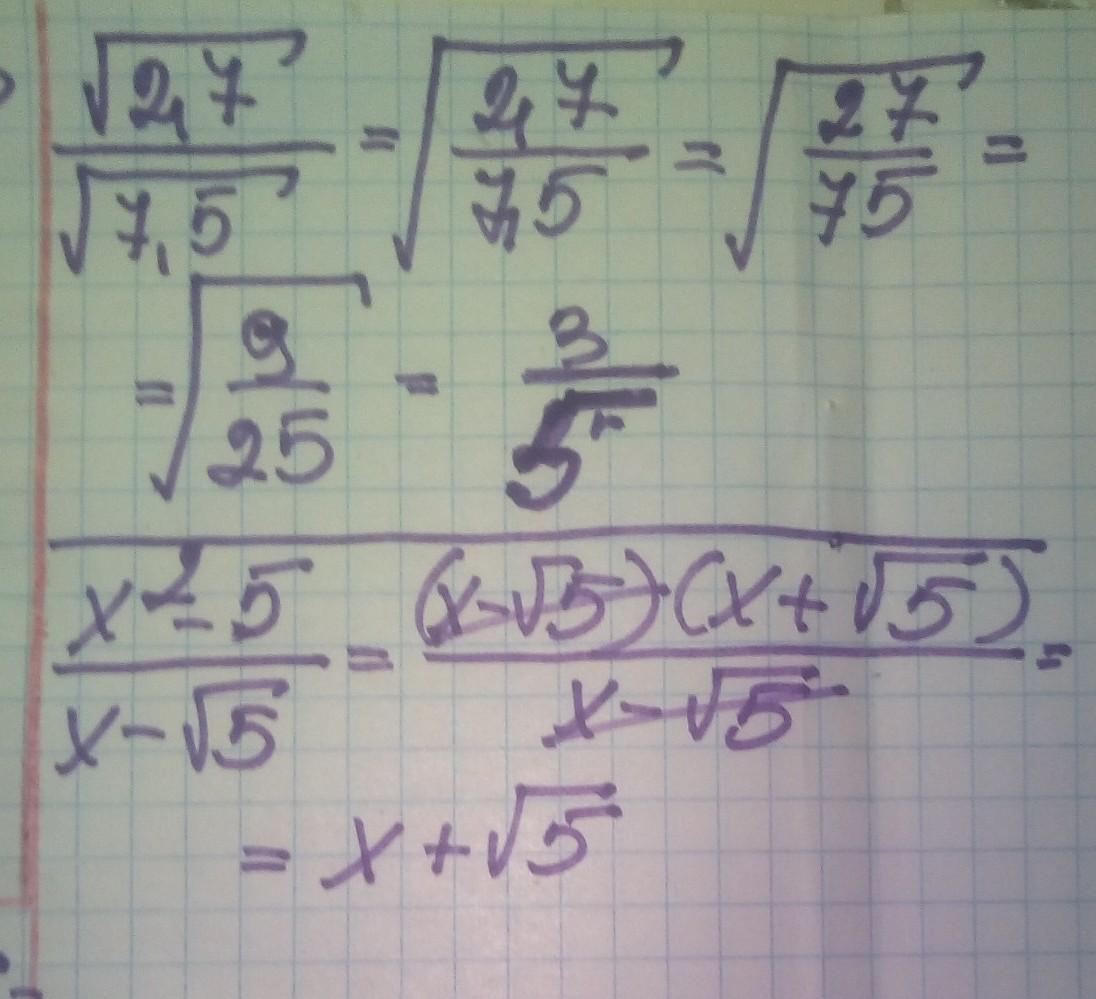 √2,7/√7,5 = √(2,7/7,5) = √(27/75) =
= √(9/25) = 3/5
(x² - 5)/(x - √5) = (x - √5)(x + √5)/(x - √5) =
= x + √5